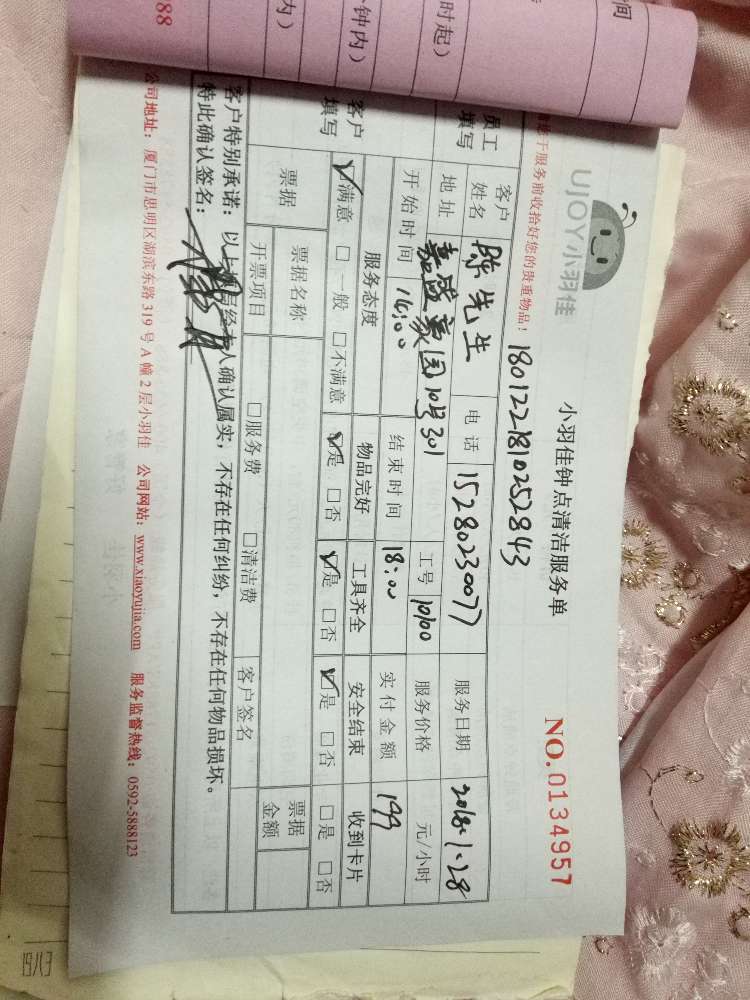 UJOY小羽佳
小羽佳钟点清洁服务单
NO.0134957
于服务前收拾好您的贵重物品!
180122181025 2843
员工填写 客户姓名 陈先生 电话 15280230077 服务日期 2018.1.28
地址 嘉盛豪园10号301 工号 10100 服务价格 元/小时
开始时间 16:00 结束时间 18:00 实付金额 199
客户填写 服务态度 物品完好 工具齐全 安全结束 收到卡片
☑满意 □一般 □不满意 ☑是 □否 ☑是 □否 ☑是 □否 □是 □否
票据 票据名称 □服务费 □清洁费 客户签名 票据金额
开票项目
客户特别承诺:以上 经 人确认属实,不存在任何纠纷,不存在任何物品损坏。
特此确认签名:
公司地址:厦门市思明区湖滨东路319号A幢2层小羽佳 公司网站:www.xiaoyujia.com 服务监督热线:0592-5888123
间
时起)
钟内)
内)
88